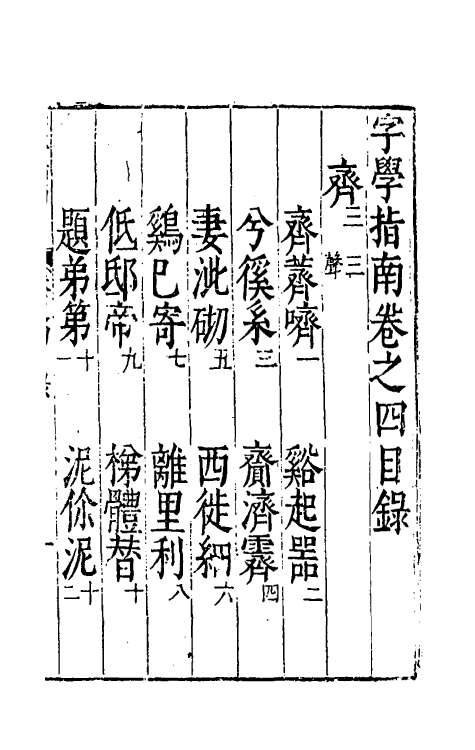 字學指南卷之四目錄
齊三 三聲
齊薺嚌一 谿起器二
兮徯系三 齎濟霽四
妻泚砌五 西徙細六
鷄已寄七 離里利八
低邸帝九 梯體替十
題弟第十一 泥伱泥十二